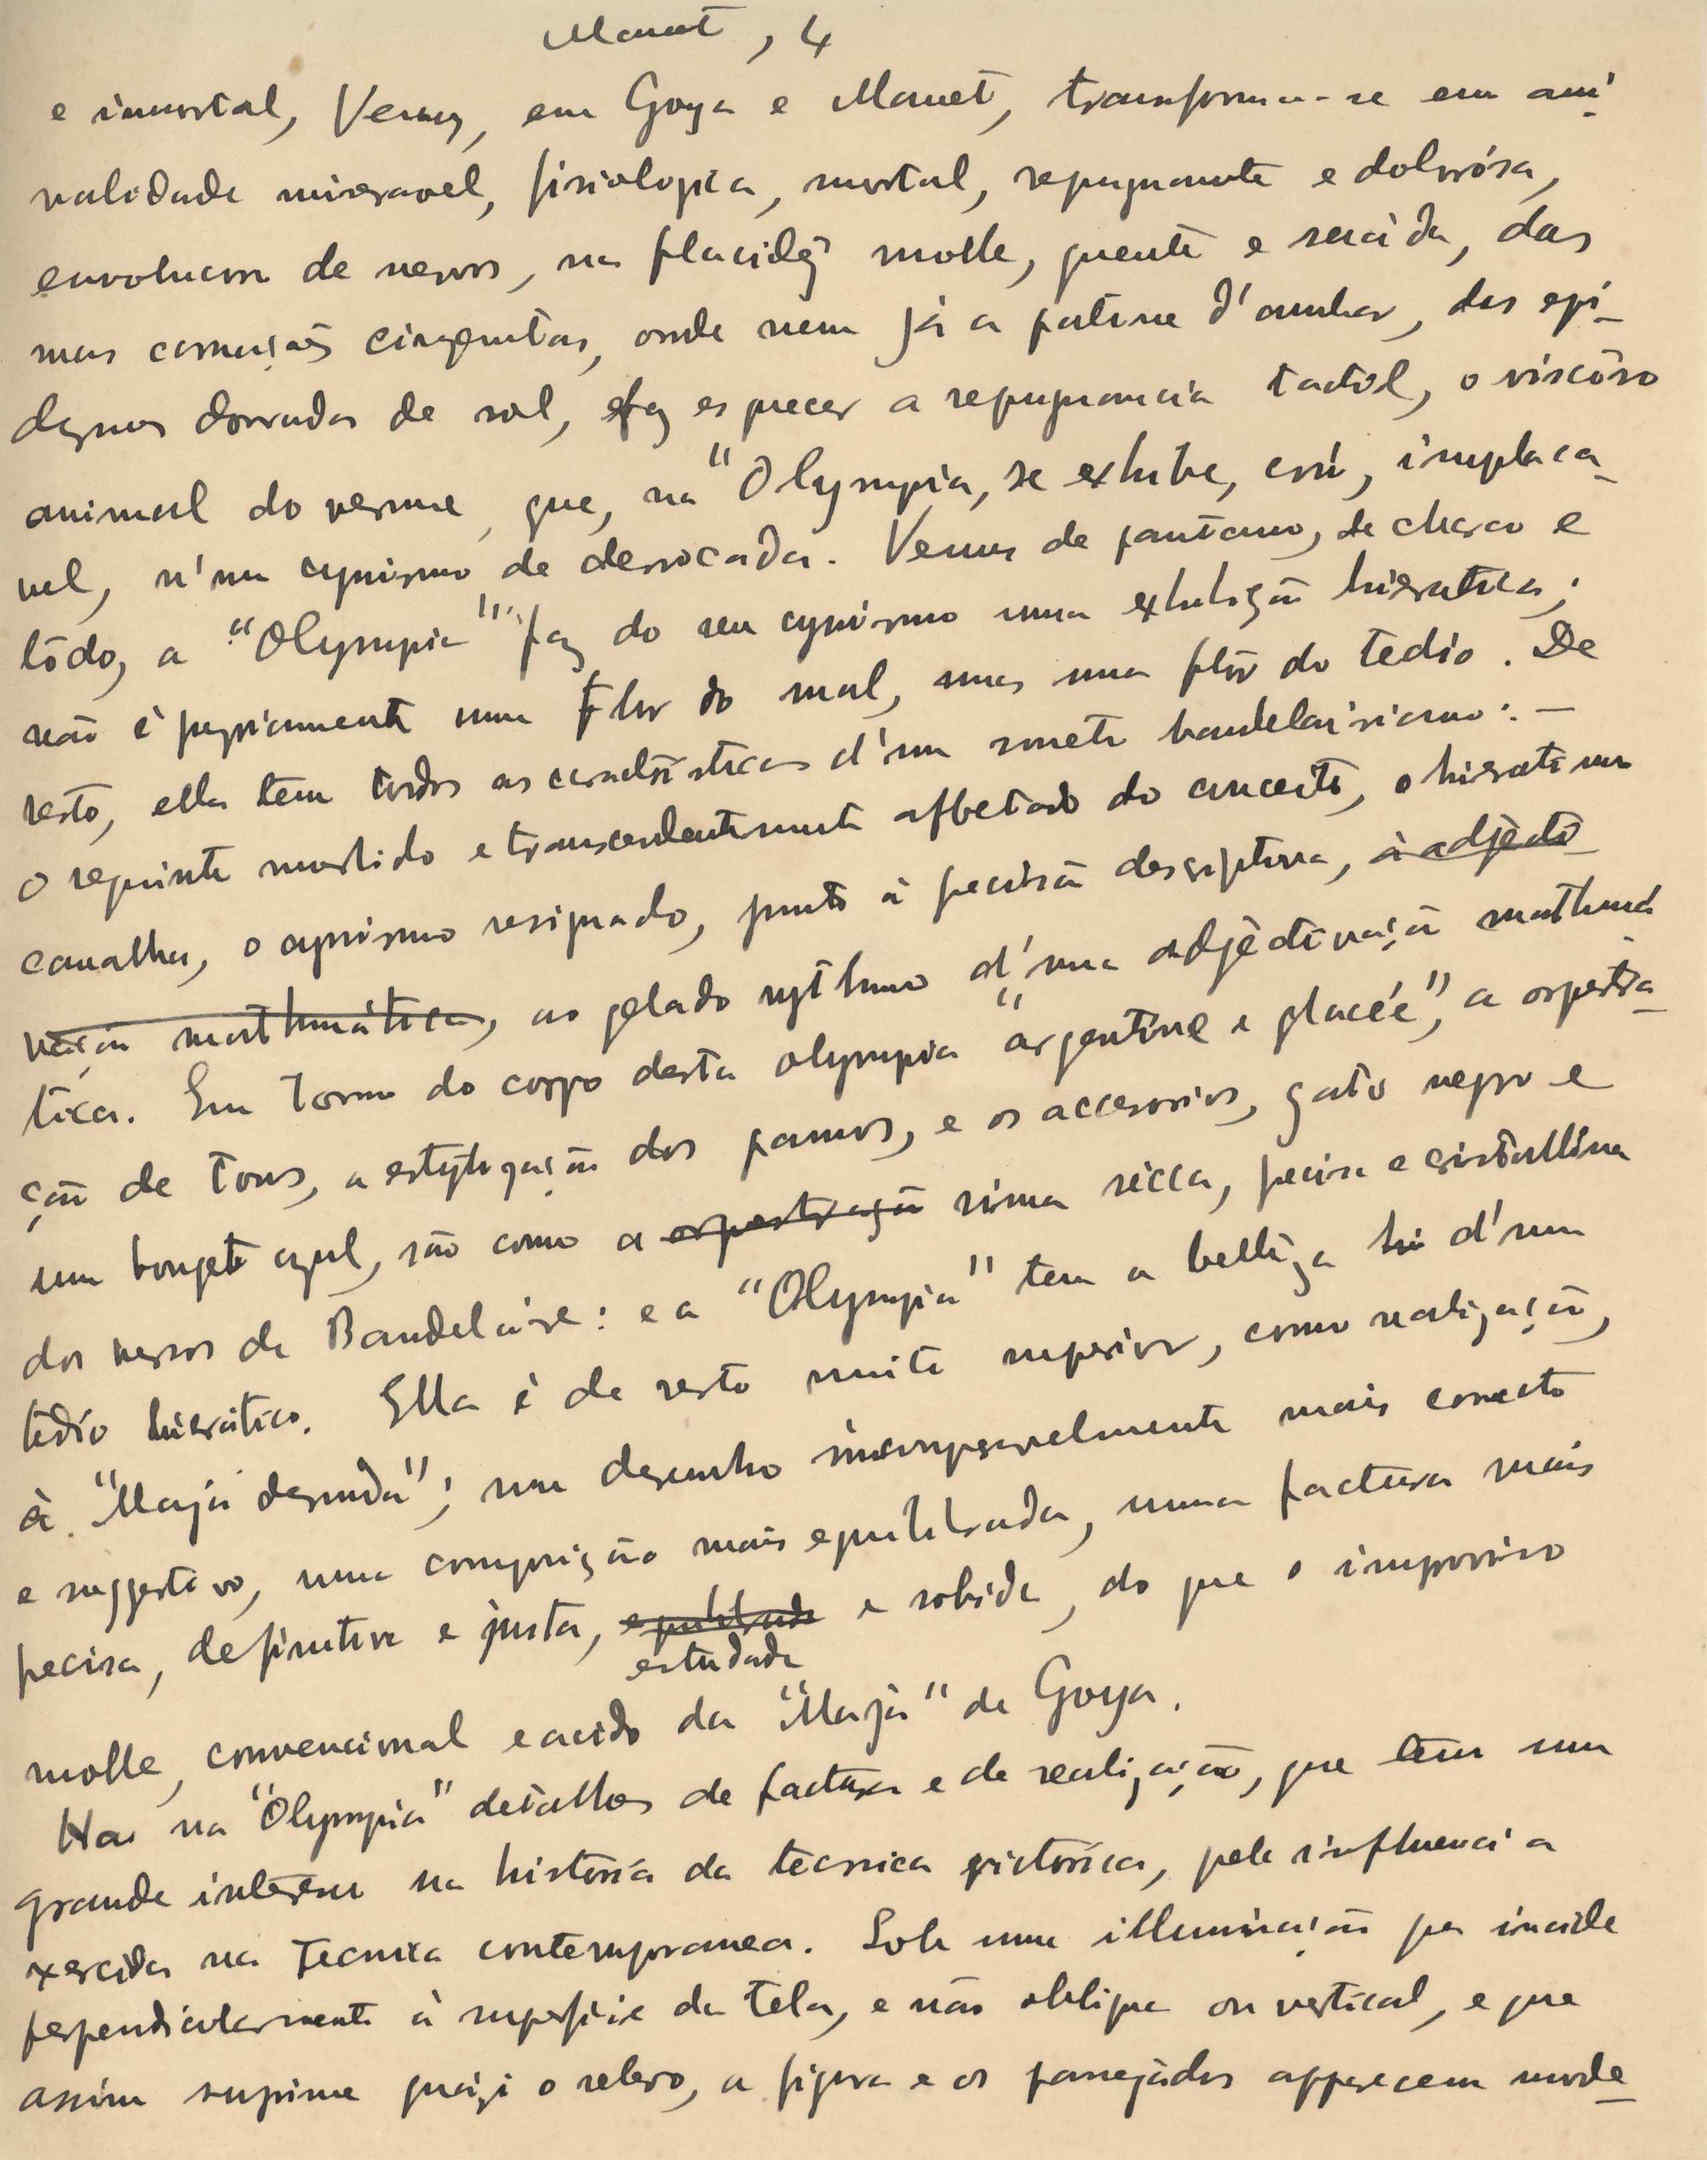 Manet, 4
e immortal, Venus, em Goya e Manet, transforma-se em ani-
malidade miseravel, fisiologica, mortal, repugnante e dolorósa,
de nervos, na flacidez molle, quente e, das
carnações cinzentas, onde nem já a patine d'ambar, das epi-
dermes dorradas de sol, faz esquecer a repugnancia tactil, o viscôso
animal do verme, que, na "Olympia, se exhibe, crú, implaca-
vel, n'um cynismo de derrocada. Venus de pantano, de charco e
lôdo, a "Olympia" faz do seu cynismo uma exhibição hieratica;
não é propriamente uma Flor do mal, mas uma flôr do tedio. De
resto, ella tem todas as caracteristicas d'um soneto baudelairiano: —
O requinte morbido e transcendentemente affectado do conceito, o hieratismo
canalha, o cynismo resignado, junto á precisão descriptiva, á adjecti-
vação mathmática, ao gelado rythmo d'uma adjèctivação mathmá-
tica. Em torno do corpo desta olympia "argentine e glacée", a orquestra-
ção de tons, a estylização dos pannos, e os accessorios, gato negro e
um bouquet azul, são como a orquestração rima ricca, precisa e cristallina
dos versos de Baudelaire: e a "Olympia" tem a belleza d'um
tedio hierático. Ella é de resto muito superior, como realização,
á "Maja desnuda"; um desenho incomparavelmente mais correcto
e suggestivo, uma composição mais equilibrada, uma factura mais
precisa, definitiva e justa, equilibrada e solida, do que o improviso
estudada
molle, convencional e acido da "Maja" de Goya.
Ha na "Olympia" detalhes de factura e de realização, que têm um
grande interesse na história da tecnica pictorica, pela influencia
exercida na tecnica contemporanea. Sob uma illuminação que incide
perpendicularmente á superficie da tela, e não obliqua ou vertical, e que
assim suprime quázi o relevo, a figura e os panejádos apparecem mode-